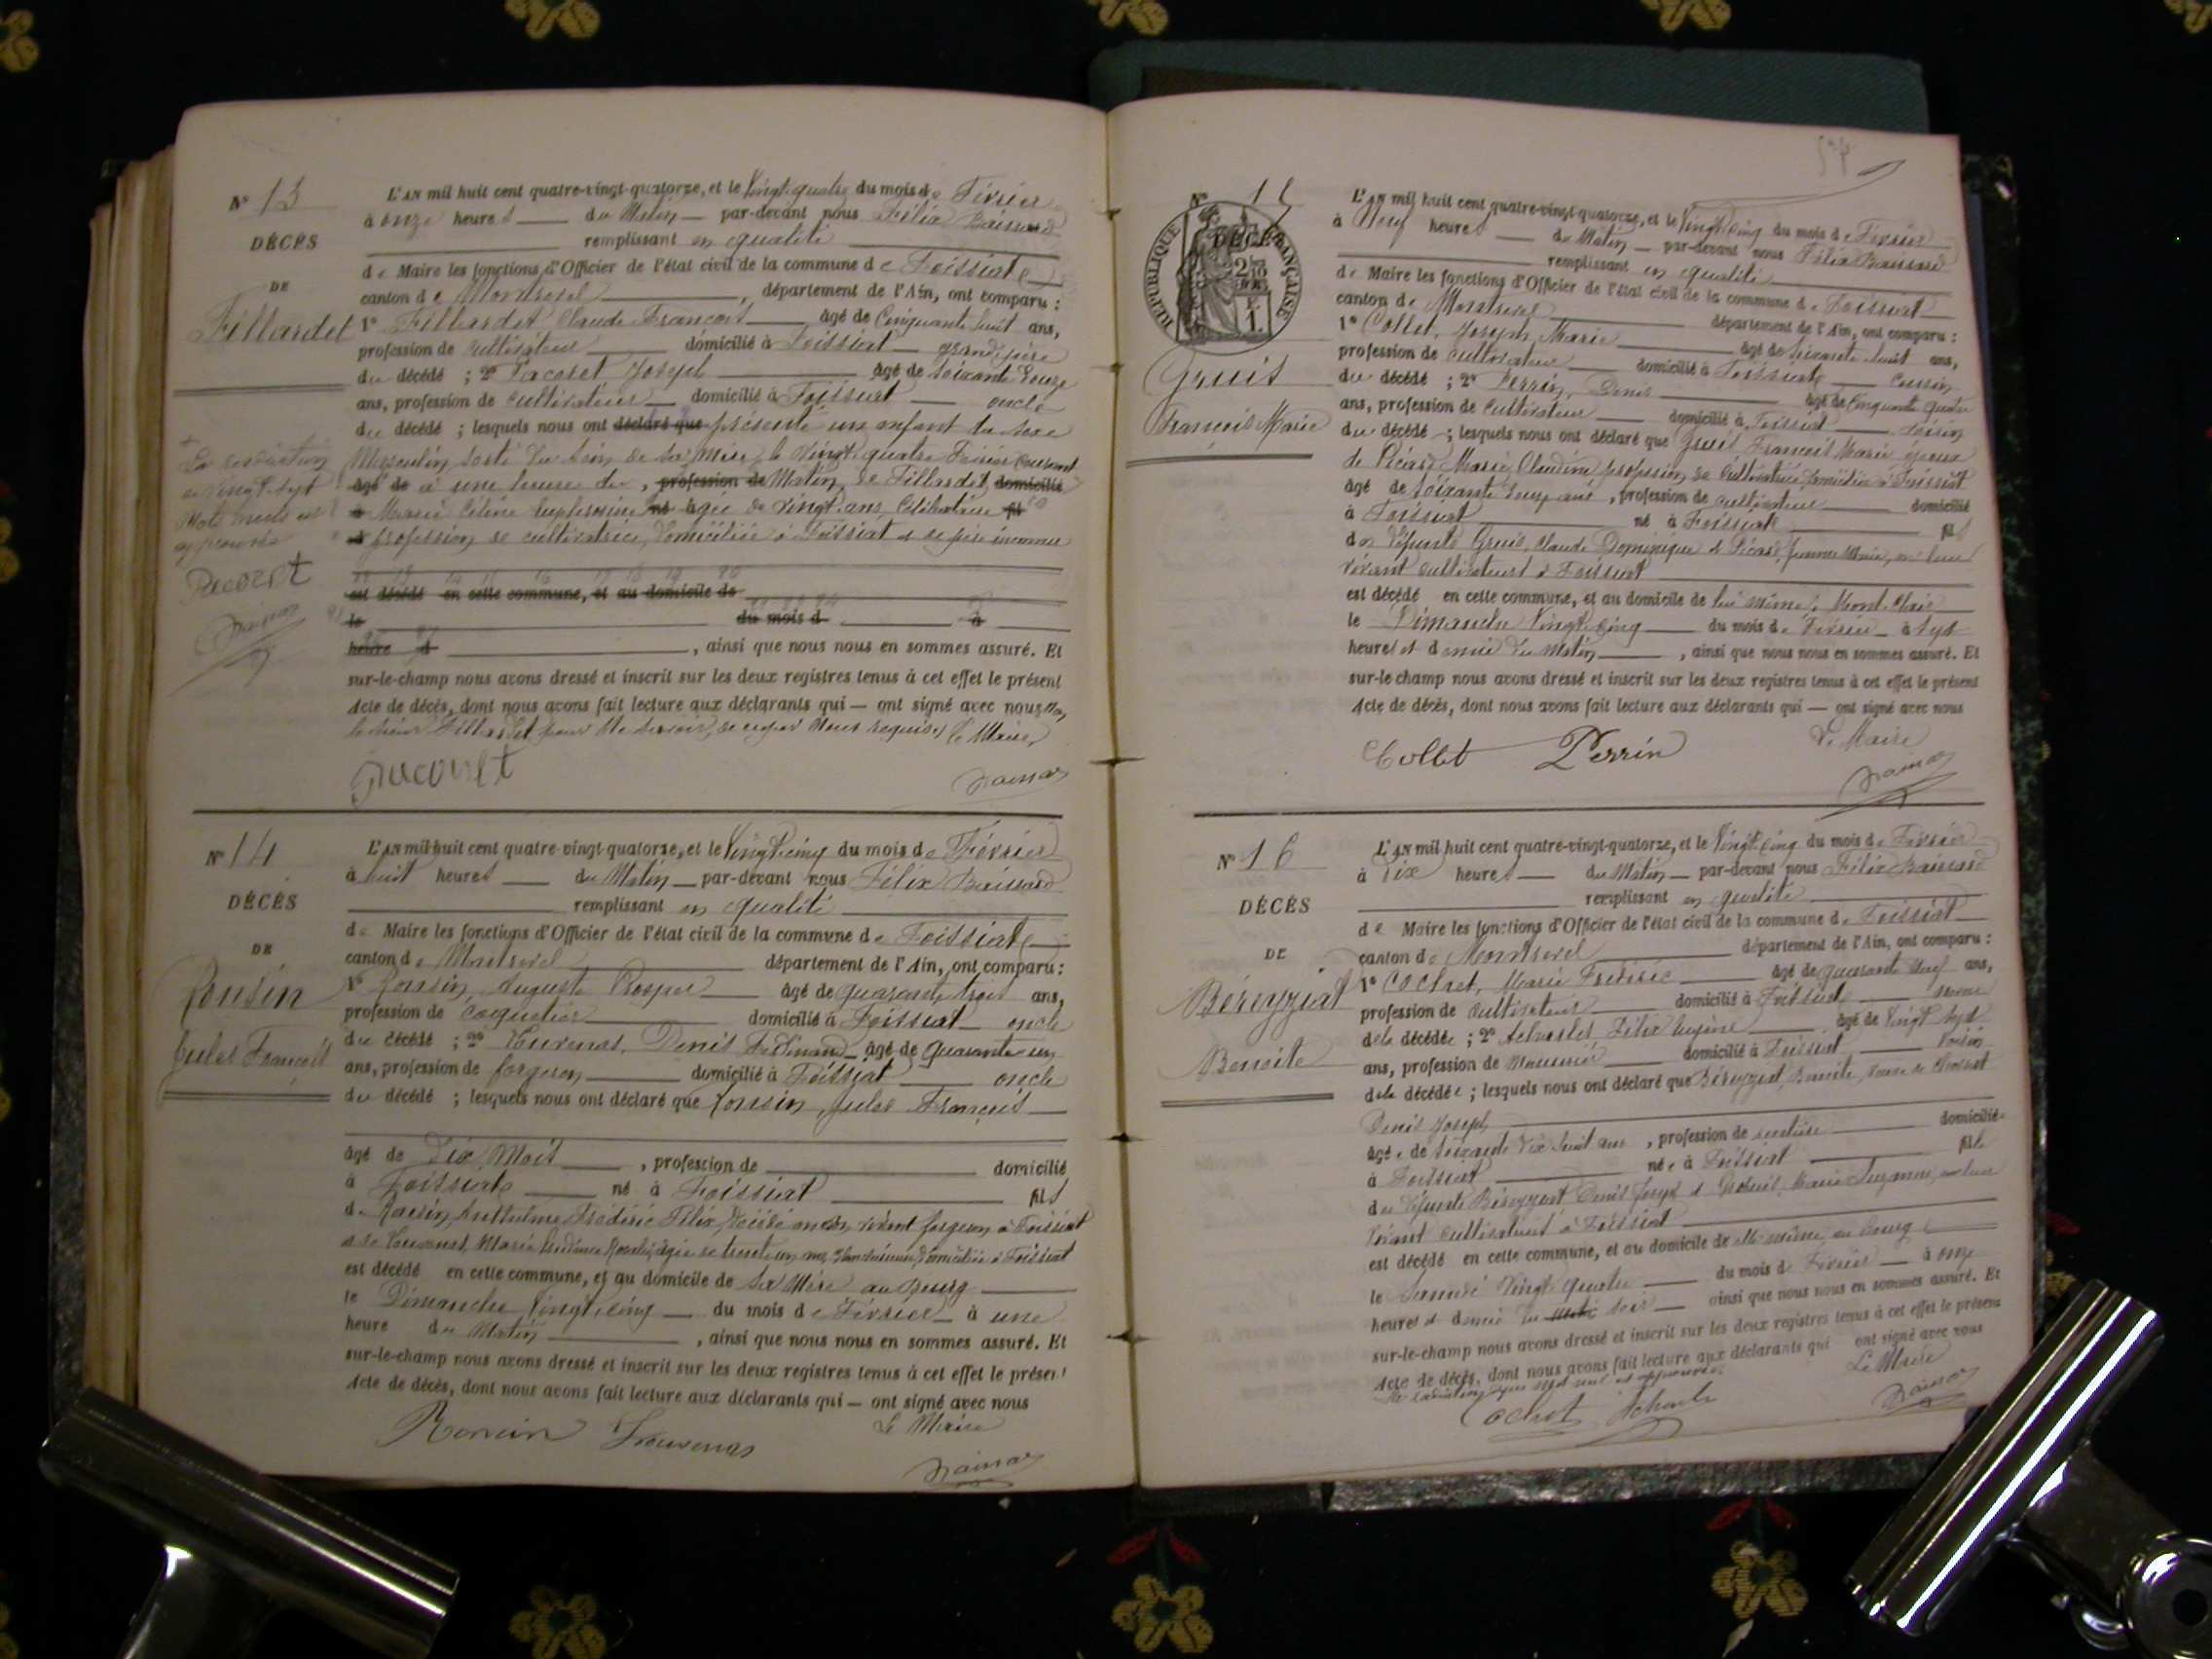 N° 13
DÉCÈS
DE
Fillardet
L'AN mil huit cent quatre-vingt-quatorze, et le Vingt quatre du mois de Février
à onze heures du Matin par-devant nous Félix
remplissant en qualité
de Maire les fonctions d'Officier de l'état civil de la commune de Foissiat
canton de Montrevel, département de l'Ain, ont comparu :
1° Fillardet Claude François âgé de Cinquante huit ans,
profession de cultivateur domicilié à Foissiat grand père
du décédé ; 2° Joseph âgé de soixante
ans, profession de cultivateur domicilié à Foissiat oncle
du décédé ; lesquels nous ont déclaré que présenté un enfant du sexe
Masculin sorti du sein de sa mère le Vingt quatre Février courant
âgé de à une heure du, profession de Matin, de Fillardet domicilié
à Marie âgée de vingt ans, Célibataire fil
profession de cultivatrice, domiciliée à Foissiat et de père inconnu
est décédé en cette commune, et au domicile de
le du mois d à
heure d, ainsi que nous nous en sommes assuré. Et
sur-le-champ nous avons dressé et inscrit sur les deux registres tenus à cet effet le présent
Acte de décès, dont nous avons fait lecture aux déclarants qui — ont signé avec nous
le sieur Fillardet pour ne savoir, de ce par nous requis. Le Maire
La radiation
de vingt sept
mots nuls est
approuvée
N° 14
DÉCÈS
DE
Jules François
L'AN mil huit cent quatre-vingt-quatorze, et le Vingt cinq du mois de Février
à huit heures du Matin par-devant nous Félix
remplissant en qualité
de Maire les fonctions d'Officier de l'état civil de la commune de Foissiat
canton de Montrevel département de l'Ain, ont comparu :
1° Auguste Prosper âgé de quarante trois ans,
profession de coquetier domicilié à Foissiat oncle
du décédé ; 2° Denis Ferdinand âgé de Quarante un
ans, profession de forgeron domicilié à Foissiat oncle
du décédé ; lesquels nous ont déclaré que Jules François
âgé de Dix Mois, profession de domicilié
à Foissiat né à Foissiat fils
de Frédéric Félix, décédé vivant forgeron à Foissiat
et de Marie âgée de trente un ans, domiciliée à Foissiat
est décédé en cette commune, et au domicile de sa Mère au Bourg
le Dimanche Vingt cinq du mois de Février à une
heure du Matin, ainsi que nous nous en sommes assuré. Et
sur-le-champ nous avons dressé et inscrit sur les deux registres tenus à cet effet le présent
Acte de décès, dont nous avons fait lecture aux déclarants qui — ont signé avec nous
Le Maire
N° 15
DÉCÈS
RÉPUBLIQUE FRANÇAISE
François Marie
L'AN mil huit cent quatre-vingt-quatorze, et le Vingt cinq du mois de Février
à Neuf heures du Matin par-devant nous Félix
remplissant en qualité
de Maire les fonctions d'Officier de l'état civil de la commune de Foissiat
canton de Montrevel département de l'Ain, ont comparu :
1° Collet, Joseph Marie âgé de soixante huit ans,
profession de cultivateur domicilié à Foissiat cousin
du décédé ; 2° Perrin, Denis âgé de Cinquante quatre
ans, profession de cultivateur domicilié à Foissiat voisin
du décédé ; lesquels nous ont déclaré que François Marie époux
de Marie Claudine profession de cultivatrice domiciliée à Foissiat
âgé de soixante ans, profession de cultivateur domicilié
à Foissiat né à Foissiat fils
des défunts Claude Dominique et Marie, en leur
vivant cultivateurs à Foissiat
est décédé en cette commune, et au domicile de lui même
le Dimanche Vingt cinq du mois de Février à sept
heures et demie du Matin, ainsi que nous nous en sommes assuré. Et
sur-le-champ nous avons dressé et inscrit sur les deux registres tenus à cet effet le présent
Acte de décès, dont nous avons fait lecture aux déclarants qui — ont signé avec nous
Collet Perrin
Le Maire
N° 16
DÉCÈS
DE
Béreyziat
Benoite
L'AN mil huit cent quatre-vingt-quatorze, et le Vingt cinq du mois de Février
à Dix heures du Matin par-devant nous Félix
remplissant en qualité
de Maire les fonctions d'Officier de l'état civil de la commune de Foissiat
canton de Montrevel département de l'Ain, ont comparu :
1° Cochet, Marie Frédéric âgé de quarante neuf ans,
profession de cultivateur domicilié à Foissiat
de la décédée ; 2° Félix Eugène âgé de Vingt sept
ans, profession de domicilié à Foissiat voisin
de la décédée ; lesquels nous ont déclaré que Béreyziat, Benoite, veuve de
Denis Joseph
âgée de soixante Dix huit ans, profession de rentière domiciliée
à Foissiat née à Foissiat fille
des défunts Béreyziat Denis Joseph et Marie Suzanne, en leur
vivant cultivateurs à Foissiat
est décédé en cette commune, et au domicile de elle même, au Bourg
le Samedi Vingt quatre du mois de Février à onze
heures et demie du soir ainsi que nous nous en sommes assuré. Et
sur-le-champ nous avons dressé et inscrit sur les deux registres tenus à cet effet le présent
Acte de décès, dont nous avons fait lecture aux déclarants qui ont signé avec nous
Le Maire
Cochet